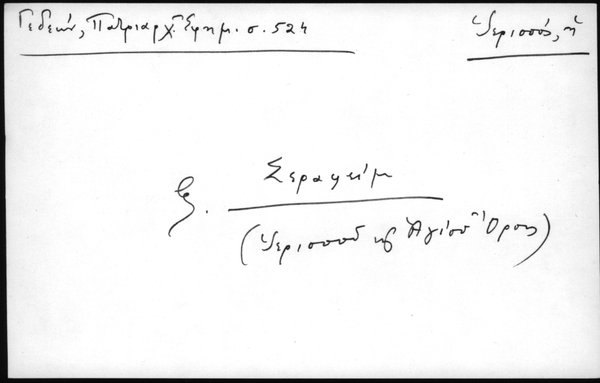 Γεδεών, Πατριαρχ. Ἐφημ. σ. 524
Ἱερισσός, ἡ
Σεραφείμ
(Ἱερισσοῦ κ Ἁγίου Ὄρους)